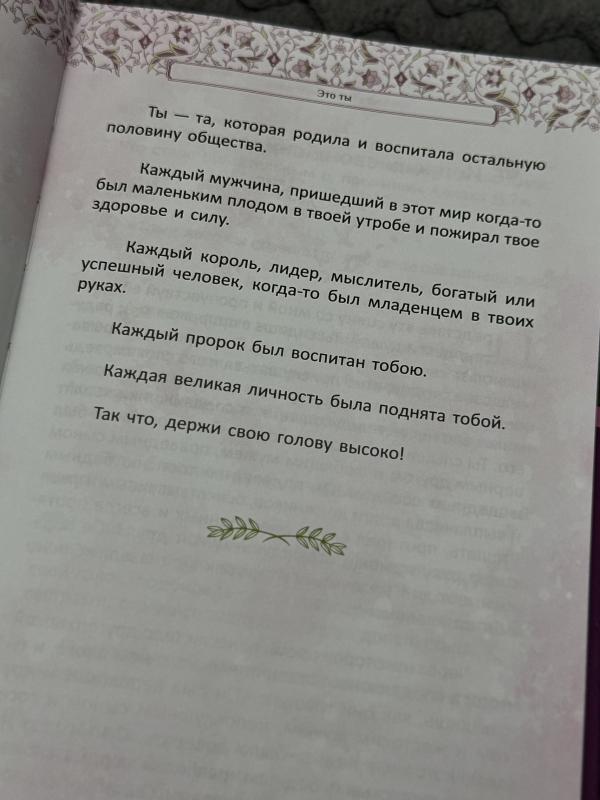 Это ты
Ты — та, которая родила и воспитала остальную
половину общества.
Каждый мужчина, пришедший в этот мир когда-то
был маленьким плодом в твоей утробе и пожирал твое
здоровье и силу.
Каждый король, лидер, мыслитель, богатый или
успешный человек, когда-то был младенцем в твоих
руках.
Каждый пророк был воспитан тобою.
Каждая великая личность была поднята тобой.
Так что, держи свою голову высоко!